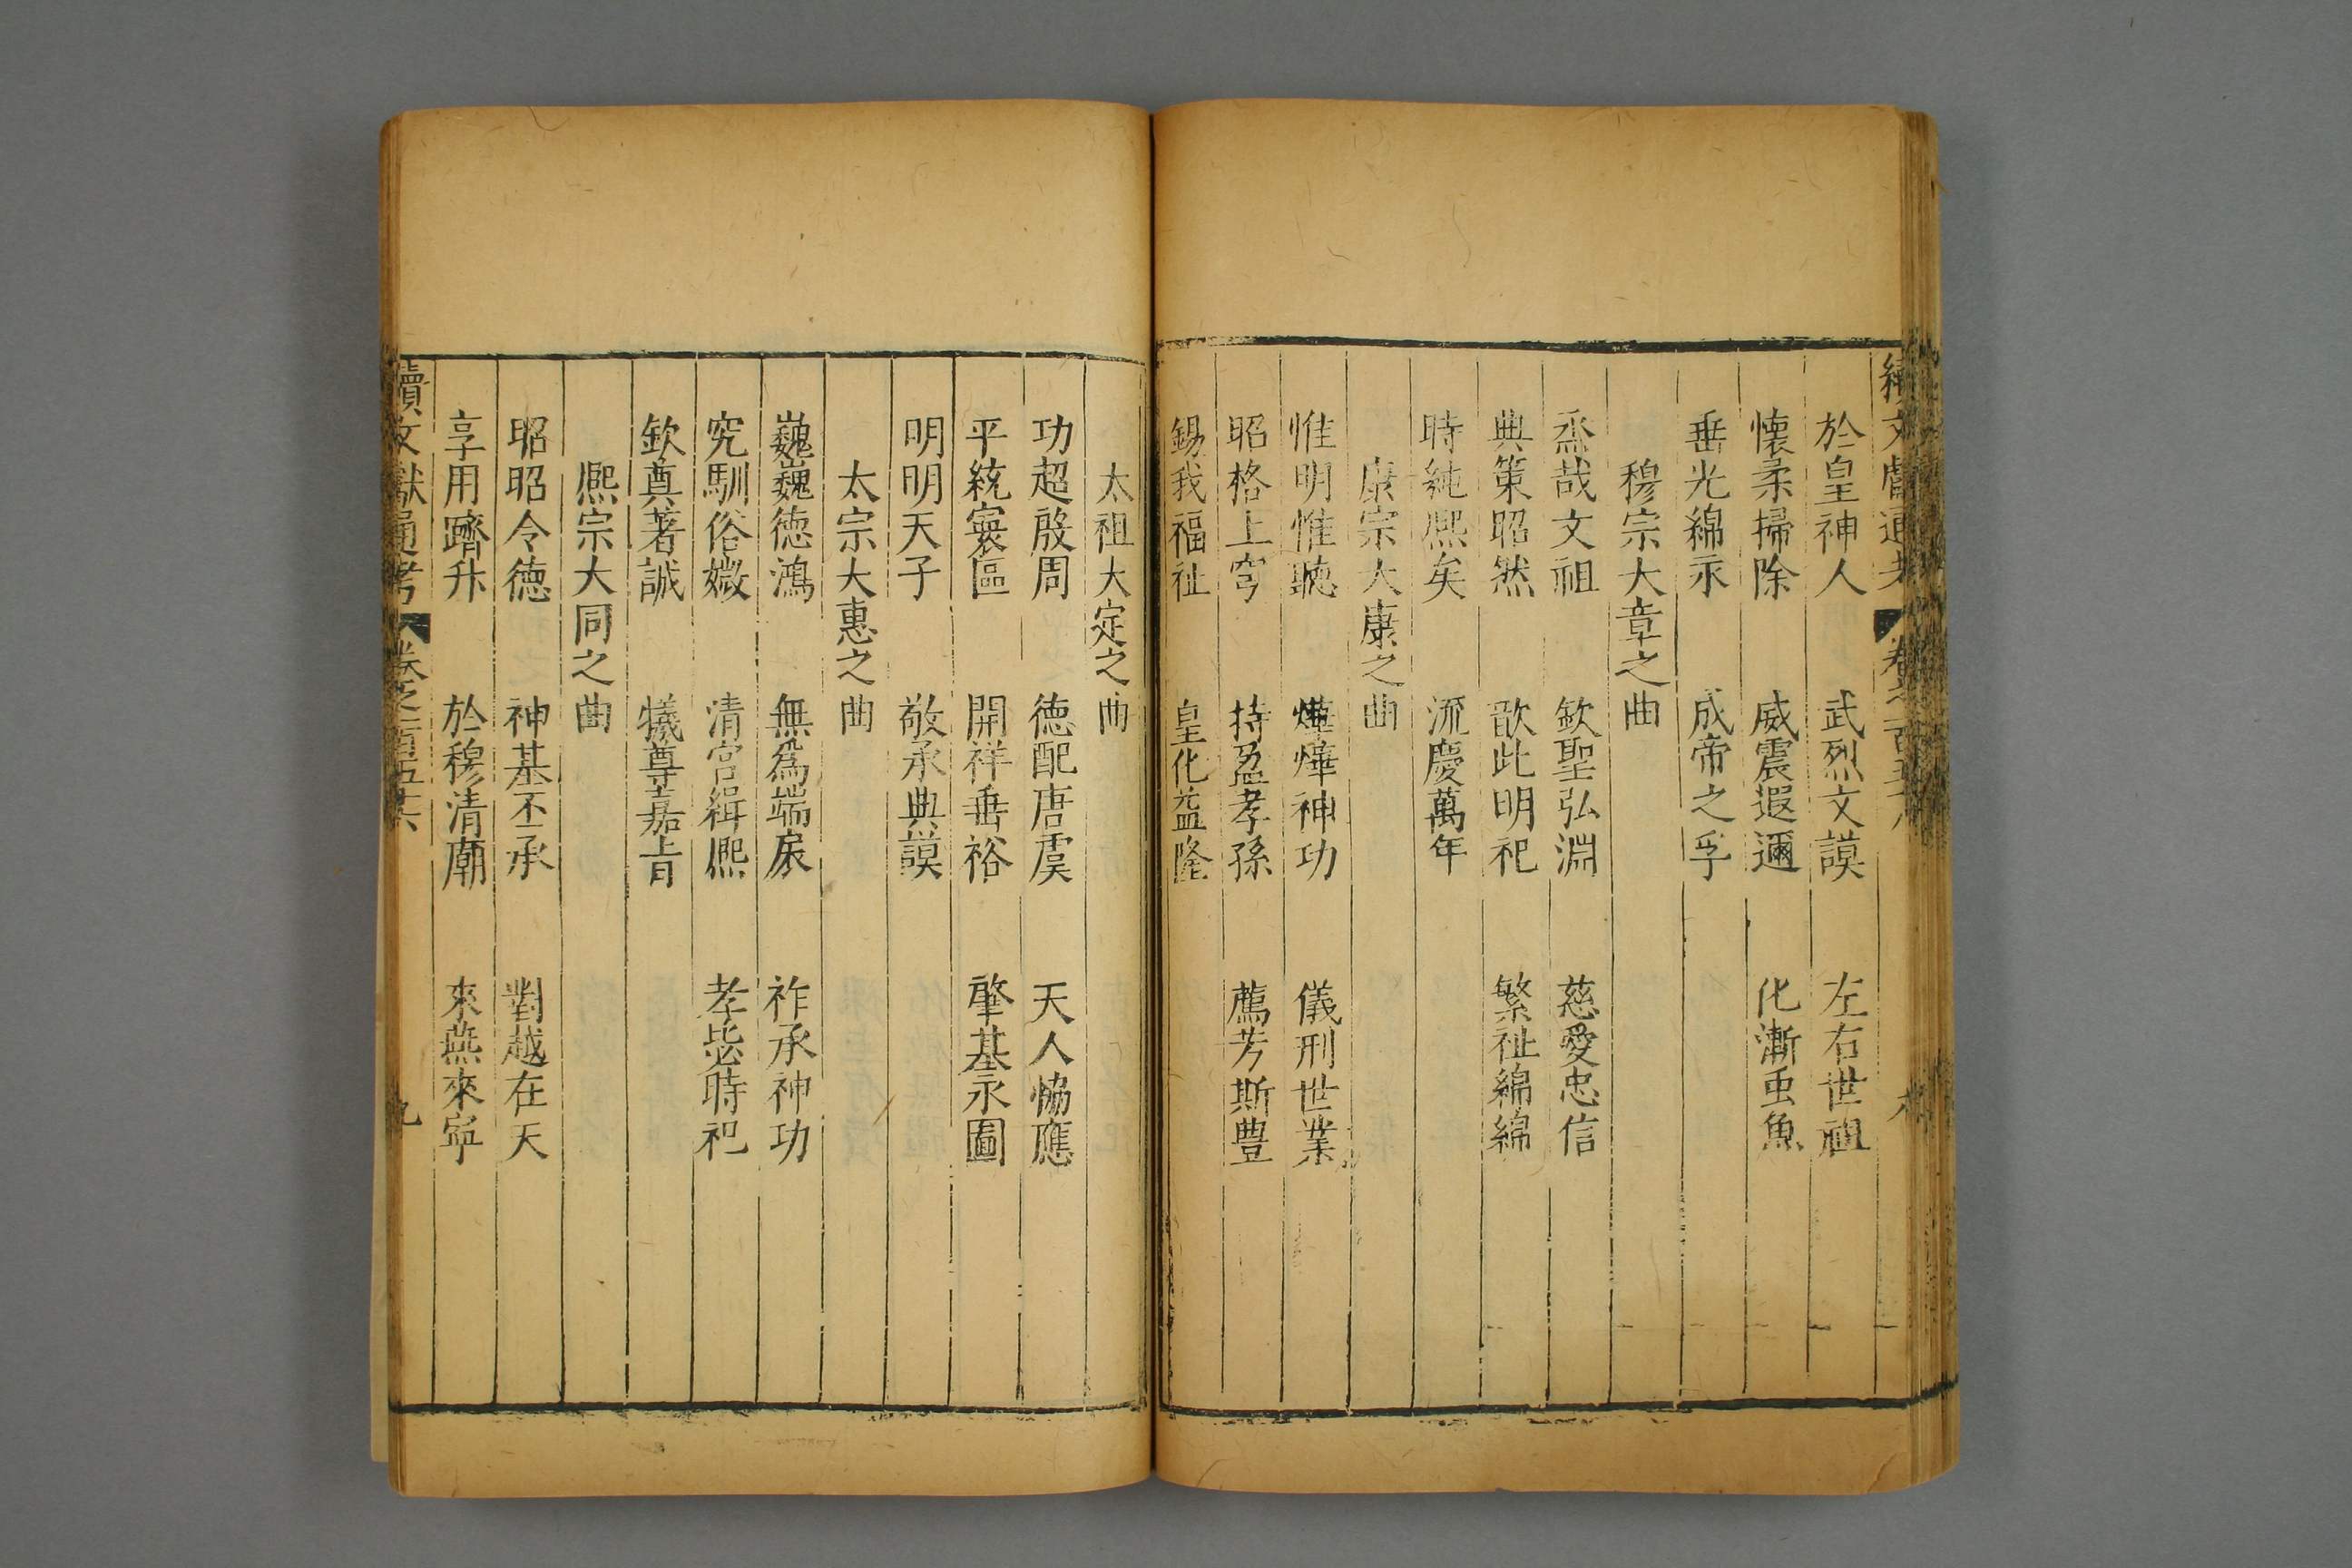 續文獻通考 卷之一百五十六
於皇神人 武烈文謨 左右世祖
懷柔掃除 威震遐邇 化漸虫魚
垂光綿永 成帝之孚
穆宗大章之曲
烝哉文祖 欽聖弘淵 慈愛忠信
典策昭然 歆此明祀 繁祉綿綿
時純熈矣 流慶萬年
康宗大康之曲
惟明惟聽 燁燁神功 儀刑世業
昭格上穹 持盈孝孫 薦芳斯豊
錫我福祉 皇化益隆
太祖大定之曲
功超殷周 德配唐虞 天人恊應
平統寰區 開祥垂裕 肇基永圖
明明天子 敬承典謨
太宗大惠之曲
巍巍德鴻 無爲端扆 祚承神功
究馴俗媺 清宫緝熈 孝毖時祀
欽奠著誠 犧尊嘉旨
熈宗大同之曲
昭昭令德 神基丕承 對越在天
享用躋升 於穆清廟 來燕來寧
續文獻通考 卷之一百五十六 九